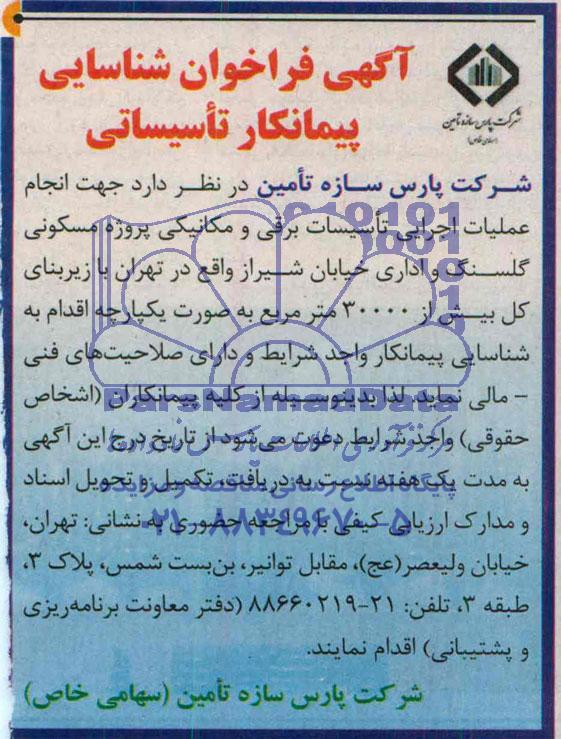 آگهی فراخوان شناسایی
پیمانکار تأسیساتی
شرکت پارس سازه تأمین
(سهامی خاص)
شرکت پارس سازه تأمین در نظر دارد جهت انجام
عملیات اجرایی تأسیسات برقی و مکانیکی پروژه مسکونی
گلسنگ و اداری خیابان شیراز واقع در تهران با زیربنای
کل بیش از ۳۰۰۰۰ متر مربع به صورت یکپارچه اقدام به
شناسایی پیمانکار واجد شرایط و دارای صلاحیت‌های فنی
- مالی نماید. لذا بدینوسیله از کلیه پیمانکاران (اشخاص
حقوقی) واجد شرایط دعوت می‌شود از تاریخ درج این آگهی
به مدت یک هفته نسبت به دریافت، تکمیل و تحویل اسناد
و مدارک ارزیابی کیفی با مراجعه حضوری به نشانی: تهران،
خیابان ولیعصر(عج)، مقابل توانیر، بن‌بست شمس، پلاک ۳،
طبقه ۳، تلفن: ۲۱-۸۸۶۶۰۲۱۹ (دفتر معاونت برنامه‌ریزی
و پشتیبانی) اقدام نمایند.
شرکت پارس سازه تأمین (سهامی خاص)
ParsNamadData
پایگاه اطلاع رسانی مناقصه و مزایده
۰۲۱-۸۸۳۴۹۶۷۰-۵